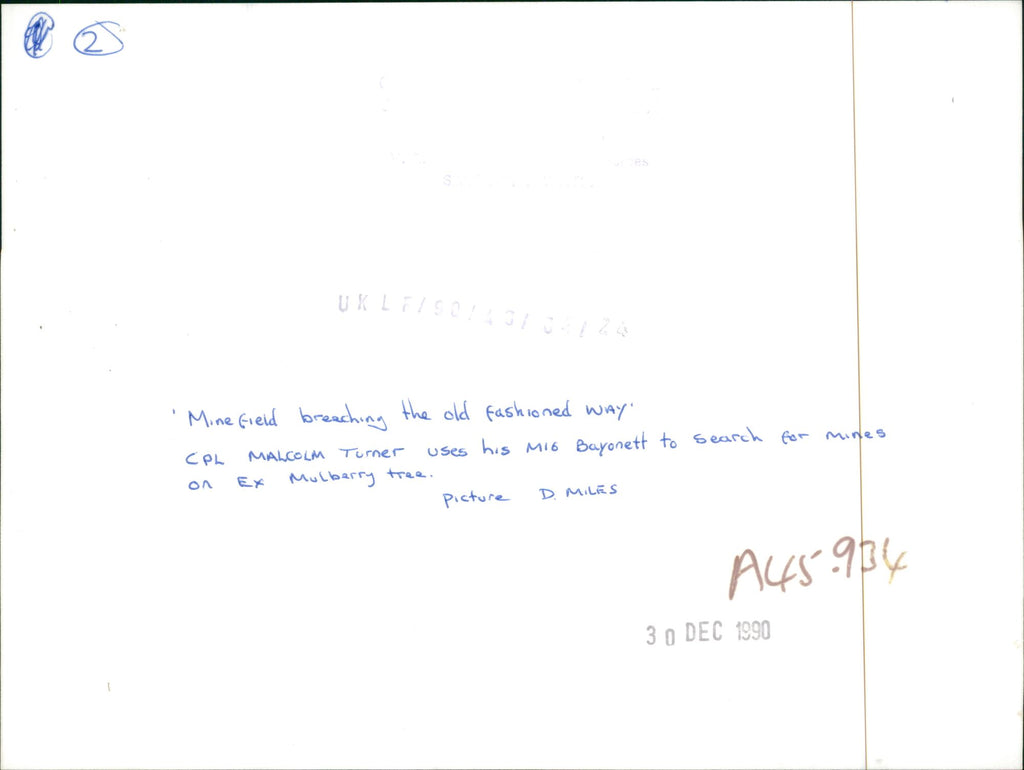 2
UKLF/90/
'Minefield breaching the old fashioned WAY'
CPL MALCOLM Turner uses his M16 Bayonett to search for mines
on Ex Mulberry tree.
picture D. MILES
A45.934
30 DEC 1990